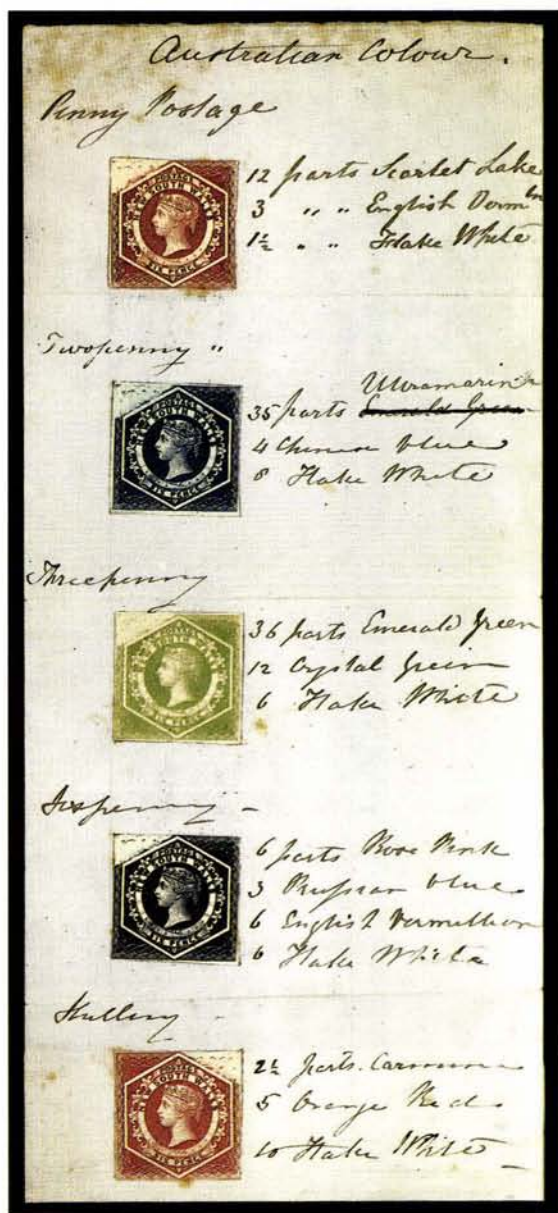 Australian Colour.
Penny Postage
POSTAGE
NEW SOUTH WALES
SIX PENCE
12 parts Scarlet Lake
3 " " English Vermln
1½ " " Flake White
Twopenny "
POSTAGE
NEW SOUTH WALES
SIX PENCE
Ultramarine
35 parts Emerald Green
4 Chinese blue
8 Flake White
Threepenny
POSTAGE
NEW SOUTH WALES
SIX PENCE
36 parts Emerald Green
12 Crystal Green
6 Flake White
Sixpenny -
POSTAGE
NEW SOUTH WALES
SIX PENCE
6 parts Rose Pink
3 Prussian blue
6 English Vermillion
6 Flake White
Shilling -
POSTAGE
NEW SOUTH WALES
SIX PENCE
2½ parts. Carmine
5 Orange Red
10 Flake White